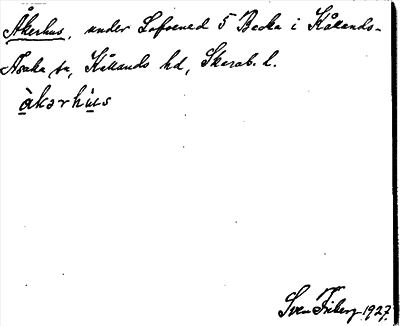 Åkerhus, under Lofvened 5 Backa i Kållands-
Åsaka sn, Kållands hd, Skarab. l.
àkərhu̇s
Sven Friberg 1927.